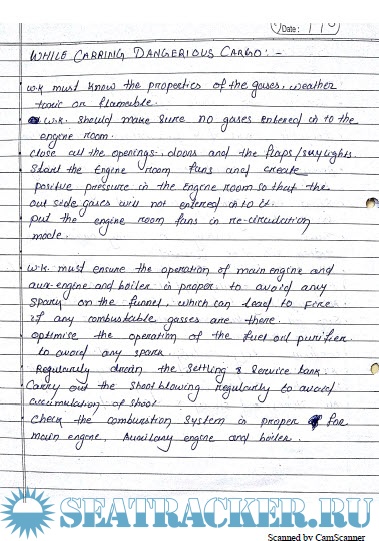 Date:
WHILE CARRING DANGERIOUS CARGO : -
w.k must know the properties of the gases, weather
toxic or flamable.
w.k. should make sure no gases entered in to the
engine room.
close all the openings, doors and the flaps/skylights.
Start the Engine room fans and create
positive pressure in the Engine Room so that the
out side gases will not entered into it.
put the engine room fans in re-circulation
mode.
w.k. must ensure the operation of main engine and
aux-engine and boiler is proper to avoid any
spark on the funnel, which can lead to Fire
if any combustable gasses are there.
optimise the operation of the fuel oil purifier
to avoid any spark.
Regularly drain the settling & service tank.
Carry out the shoot blowing regularly to avoid
accumulation of shoot
check the comburstion system is proper for
main engine, Auxilary engine and boiler.
SEATRACKER.RU
Scanned by CamScanner